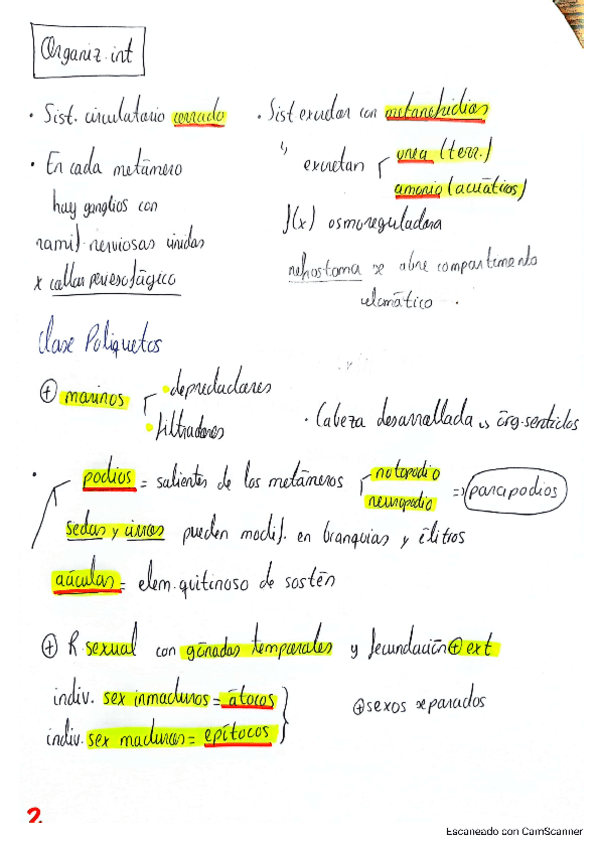 Organiz. int
· Sist. circulatorio cerrado
· En cada metámero
hay ganglios con
ramif. nerviosas unidas
x collar periesofágico
· Sist excretor con metanefridios
↳ excretan
urea (terr.)
amonio (acuáticos)
f(x) osmoreguladora
nefrostoma se abre compartimento
celomático .
Clase Poliquetos
⊕ marinos
· depredadores
· filtradores
· Cabeza desarrollada ↳ órg. sentidos
· podios = salientes de los metámeros
notopodio
neuropodio
=> parapodios
sedas y cirros pueden modif. en branquias y élitros
acículas = elem. quitinoso de sostén
⊕ R. sexual con gónadas temporales y fecundación ⊕ ext
indiv. sex inmaduros = átocos
indiv. sex maduros = epítocos
⊕ sexos separados
2.
Escaneado con CamScanner